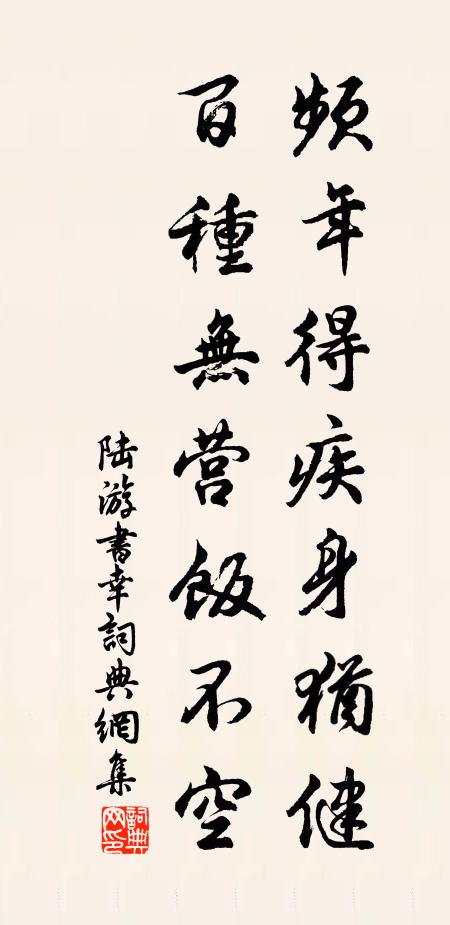 频年得疾身猶健
百種無营飯不空
陆游書幸詞典網集
詞典网印